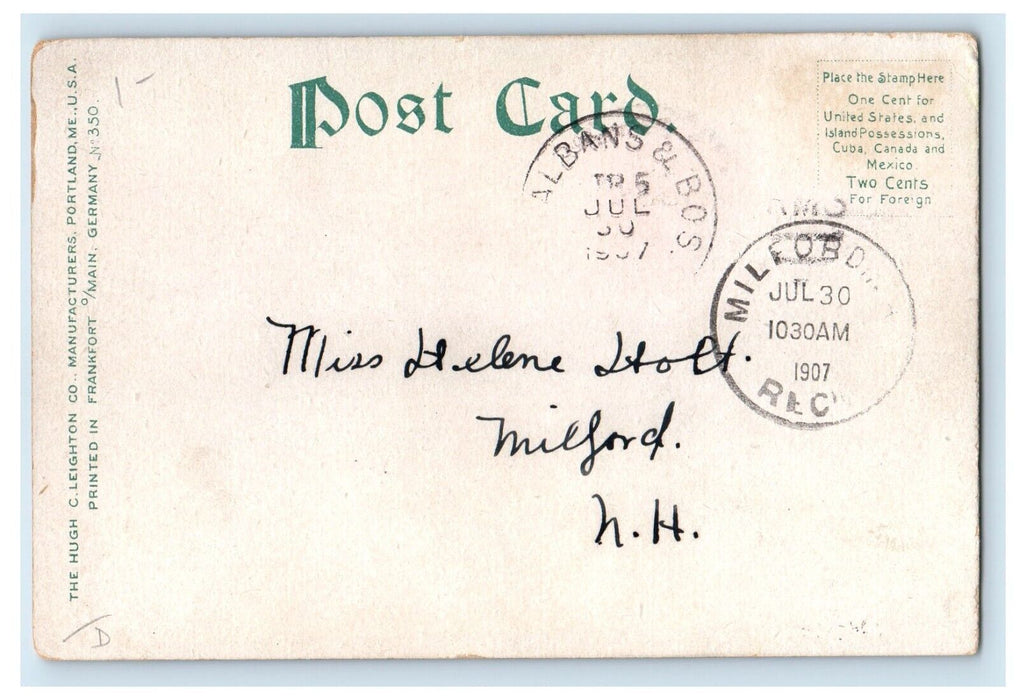 THE HUGH C. LEIGHTON CO., MANUFACTURERS, PORTLAND, ME., U.S.A.
PRINTED IN FRANKFORT o/MAIN, GERMANY No 350.
1-
Post Card.
Place the Stamp Here
One Cent for
United States, and
Island Possessions,
Cuba, Canada and
Mexico
Two Cents
For Foreign
ALBANS & BOS
TR 5
JUL
30
1907
RMS
MILFORD
JUL 30
1030AM
1907
REC'
Miss Helene Holt.
Milford.
N.H.
D